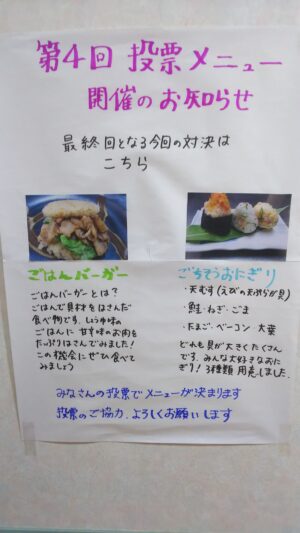 第4回 投票メニュー
開催のお知らせ
最終回となる今回の対決は
こちら
ごはんバーガー
ごはんバーガーとは?
ごはんで具材をはさんだ
食べ物です。しょうゆ味の
ごはんに 甘辛味のお肉を
たっぷりはさんでみました!
この機会にぜひ食べて
みましょう
ごちそうおにぎり
・天むす(えびの天ぷらが具)
・鮭・ねぎ・ごま
・たまご・ベーコン・大葉
どれも具が大きくたくさん
です。みんな大好きなおに
ぎり!3種類用意しました。
みなさんの投票でメニューが決まります
投票のご協力、よろしくお願いします